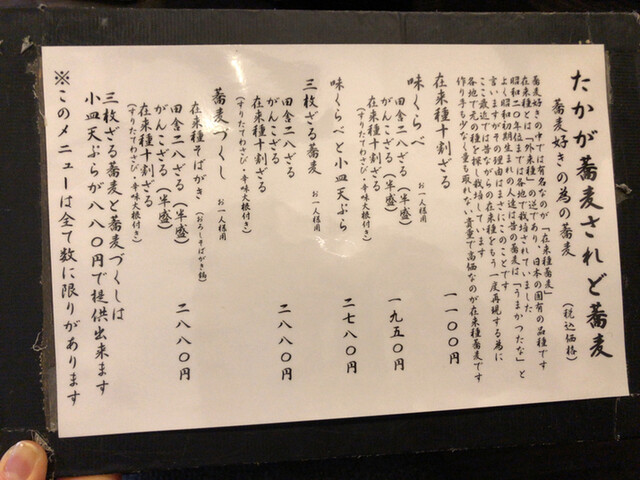 たかが蕎麦されど蕎麦
蕎麦好きの為の蕎麦 (税込価格)
蕎麦好きの中では有名なのが「在来種蕎麦」
在来種とは「外来種」の逆であり、日本の固有の品種です
昭和二〇年位までは各地で栽培されていました
よく昭和初期生まれの人達は昔の蕎麦は「うまかったな」と
言いますがその理由はまさにこのことです
ここ最近では昔ながらの在来種をもう一度再現する為に
各地で元の種を探し栽培しています
作り手も少なく量も取れない貴重で高価なのが在来種蕎麦です
在来種十割ざる 一一〇〇円
味くらべ お一人様用
田舎二八ざる (半盛)
がんこざる (半盛)
在来種十割ざる 一九五〇円
(すりたてわさび・辛味大根付き)
味くらべと小皿天ぷら 二七八〇円
三枚ざる蕎麦 お一人様用
田舎二八ざる
がんこざる
在来種十割ざる 二八八〇円
(すりたてわさび・辛味大根付き)
蕎麦づくし お一人様用
在来種そばがき (おろしそばがき鍋)
田舎二八ざる (半盛)
がんこざる (半盛)
在来種十割ざる 二八八〇円
(すりたてわさび・辛味大根付き)
三枚ざる蕎麦と蕎麦づくしは
小皿天ぷらが八八〇円で提供出来ます
※このメニューは全て数に限りがあります